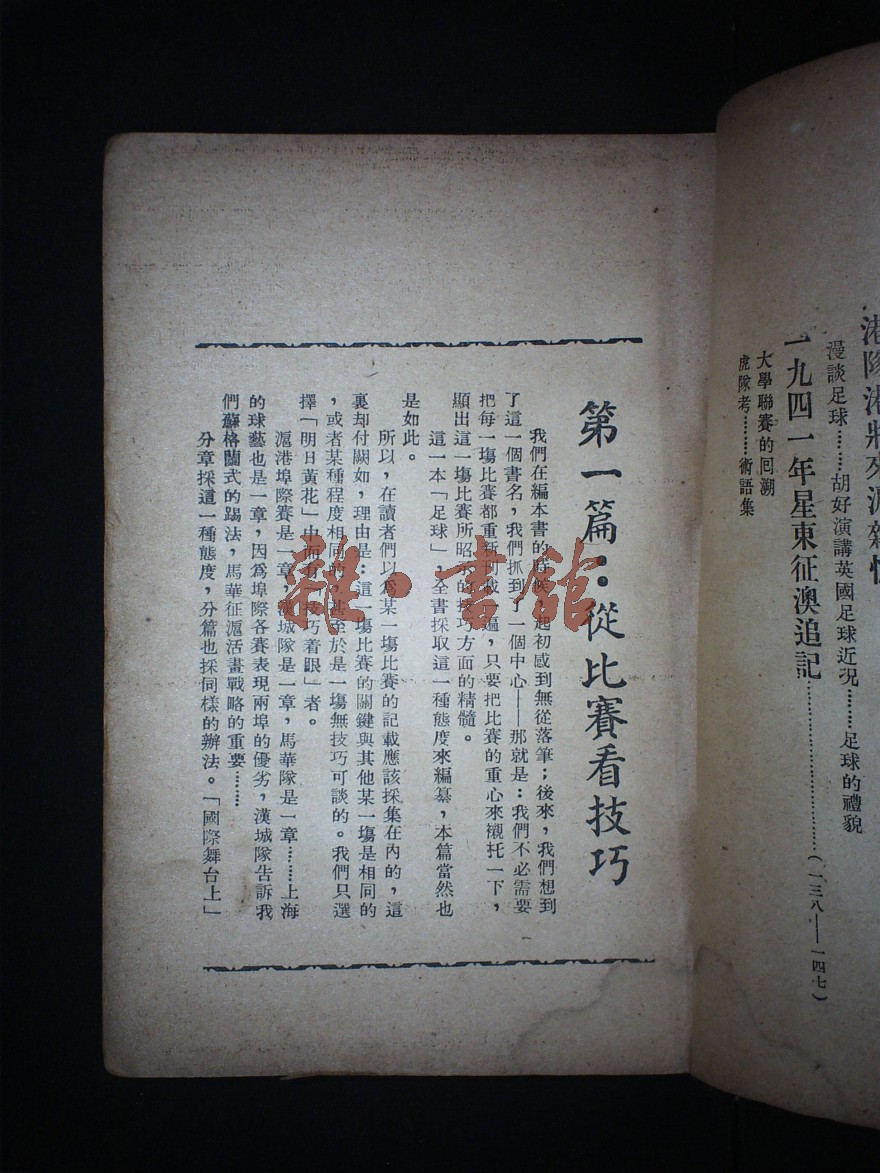 港隊港將來滬雜
漫談足球………胡好演講英國足球近況………足球的禮貌
一九四一年星東征澳追記……………………(一三八—一四七)
大學聯賽的回溯
虎隊考………術語集
第一篇：從比賽看技巧
我們在編本書的時候，起初感到無從落筆；後來，我們想到
了這一個書名，我們抓到了一個中心——那就是：我們不必需要
把每一場比賽都重新刊載一遍，只要把比賽的重心來襯托一下，
顯出這一場比賽所昭示的技巧方面的精髓。
這一本「足球」，全書採取這一種態度來編纂，本篇當然也
是如此。
所以，在讀者們以為某一場比賽的記載應該採集在內的，這
裏却付闕如，理由是：這一場比賽的關鍵與其他某一場是相同的
，或者某種程度相同的，甚至於是一場無技巧可談的。我們只選
擇「明日黃花」中而有「技巧着眼」者。
滬港埠際賽是一章，漢城隊是一章，馬華隊是一章………上海
的球藝也是一章，因為埠際各賽表現兩埠的優劣，漢城隊告訴我
們蘇格蘭式的踢法，馬華征滬活畫戰略的重要………
分章採這一種態度，分篇也採同樣的辦法。「國際舞台上」
雜·書館